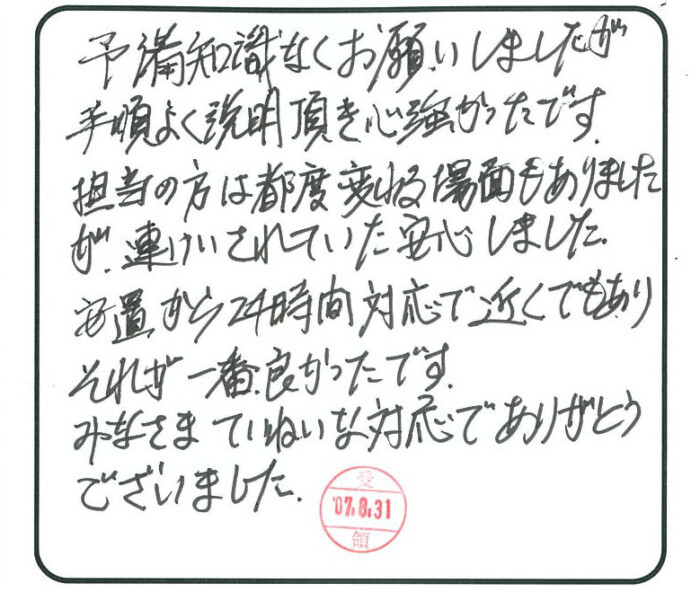 予備知識なくお願いしましたが
手順よく説明頂き心強かったです。
担当の方は都度変わる場面もありました
が、連けいされていた安心しました。
安置から24時間対応で近くでもあり
それが一番良かったです。
みなさまていねいな対応でありがとう
ございました。
受
'07.8.31
領